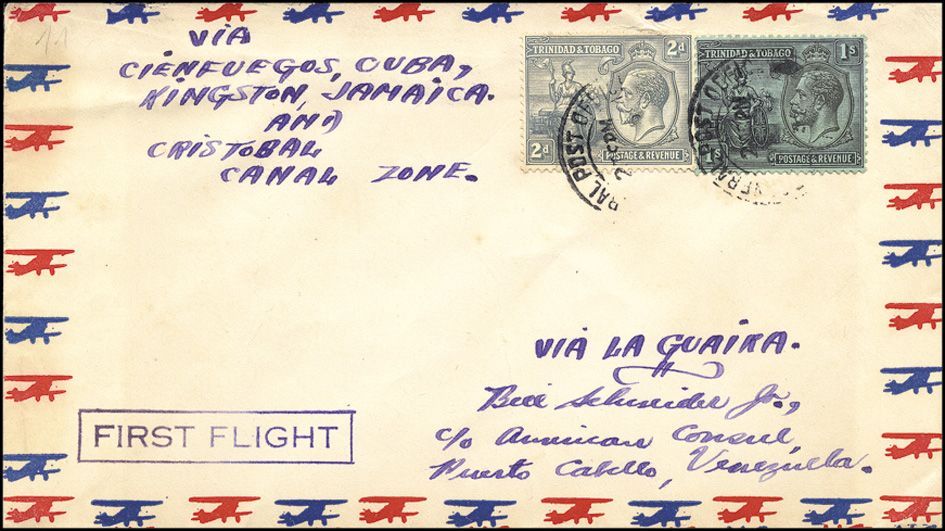 1.1
VIA
CIENFUEGOS, CUBA,
KINGSTON, JAMAICA.
AND
CRISTOBAL
CANAL ZONE.
TRINIDAD & TOBAGO 2d
2d POSTAGE & REVENUE
TRINIDAD & TOBAGO 1s
1s POSTAGE & REVENUE
RAL POST OF
PM
POST OFF
PM
VIA LA GUAIRA.
Bill Schneider Jr.,
c/o American Consul,
Puerto Cabello, Venezuela.
FIRST FLIGHT